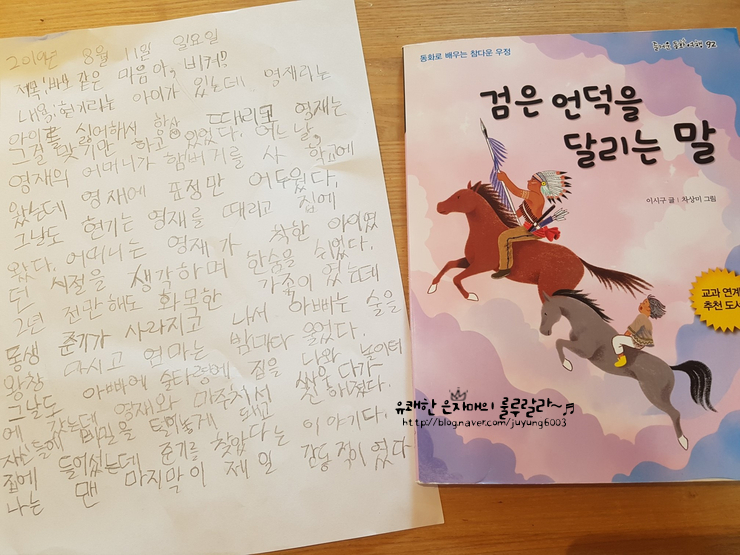 2019년 8월 11일 일요일
제목: 바보 같은 마음아, 비켜!
내용: 현기라는 아이가 있는데 영재라는
아이를 싫어해서 항상 때리고 영재는
그걸 맞기만 하고 있었다. 어느 날,
영재의 어머니가 햄버거를 사 학교에
왔는데 영재에 표정만 어두웠다.
그날도 현기는 영재를 때리고 집에
왔다. 어머니는 영재가 착한 아이였
던 시절을 생각하며 한숨을 쉬었다.
2년 전만해도 화목한 가족이 였는데
동생 준기가 사라지고 나서 아빠는 술을
왕창 마시고 엄마는 밤마다 울었다.
그날도 아빠에 술타령에 집을 나와 놀이터
에 갔는데 영재와 마주쳐서 싸울다가
자신들에 비밀을 들어놓게 돼고 친해졌다.
집에 들어섰는데 준기를 찾았다는 이야기다.
나는 맨 마지막이 제일 감동적이였다
동화로 배우는 참다운 우정
92
검은 언덕을
달리는 말
이시구 글 | 차상미 그림
교과 연계
추천 도서
유쾌한 은자매의 룰루랄라~♬
http://blog.naver.com/juyung6003